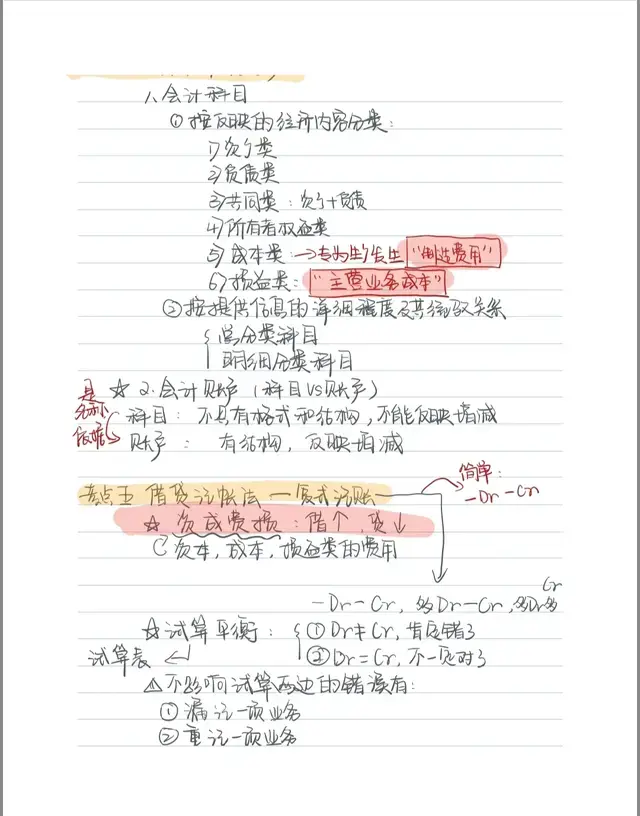 1、会计科目
① 按反映的经济内容分类：
1) 资产类
2) 负债类
3) 共同类：资产+负债
4) 所有者权益类
5) 成本类：→专为生产发生 "制造费用"
6) 损益类："主营业务成本"
② 按提供信息的详细程度及其统驭关系
总分类科目
明细分类科目
☆ 2.会计账户（科目VS账户）
是名称依据
科目：不具有格式和结构，不能反映增减
账户：有结构，反映增减
简单：
一Dr一Cr
考点五 借贷记帐法 — 复式记账
☆ 资成费损：借↑，贷↓
资本，成本，损益类的费用
一Dr一Cr，多Dr一Cr，多Dr多Cr
☆试算平衡：① Dr≠Cr，肯定错了
试算表 ← ② Dr=Cr，不一定对了
△不影响试算两边的错误有：
① 漏记一项业务
② 重记一项业务